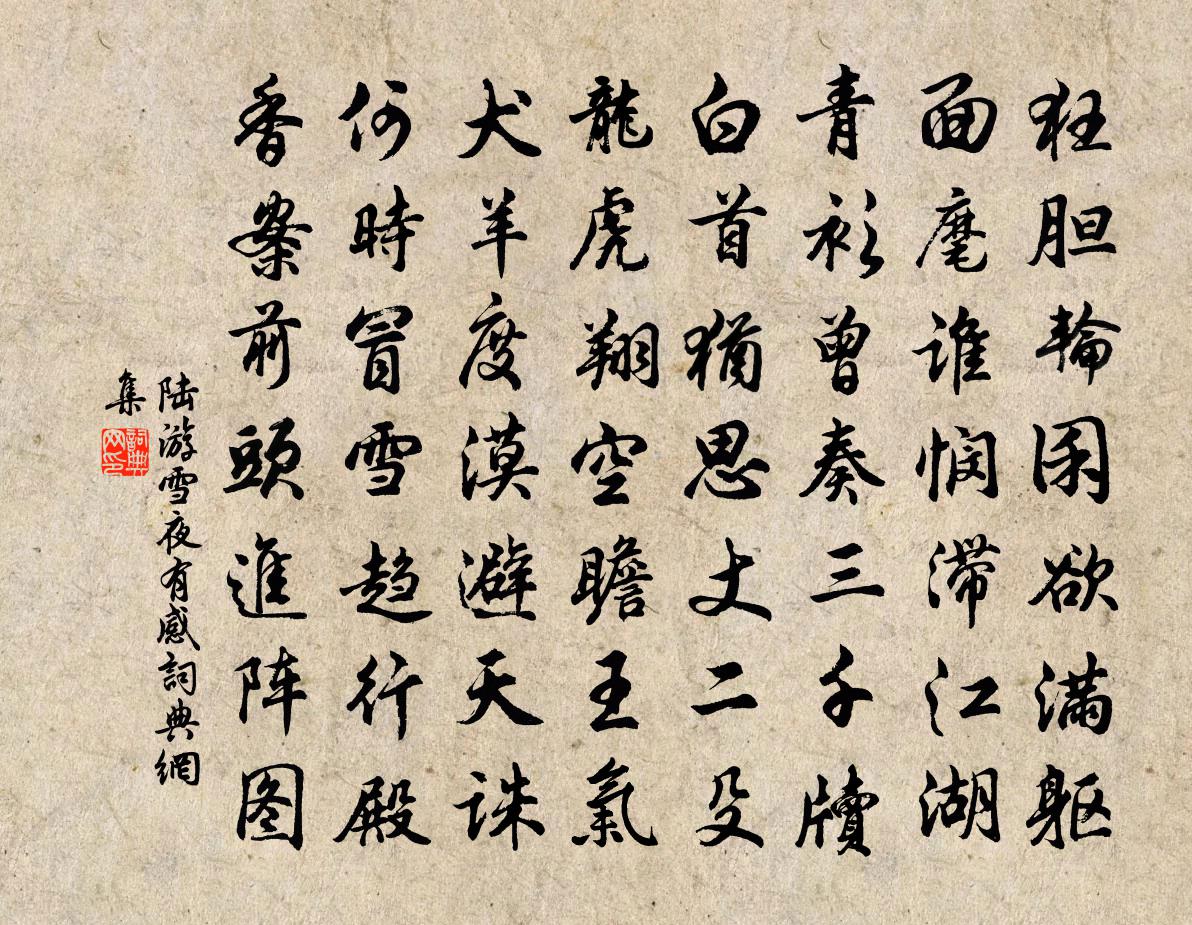 狂胆輪囷欲满躯
面麾谁悯滞江湖
青衫曾奏三千牘
白首猶思丈二殳
龍虎翔空瞻王氣
犬羊度漠避天诛
何時冒雪趋行殿
香案前頭進阵图
陆游雪夜有感詞典網
集
詞典
网印